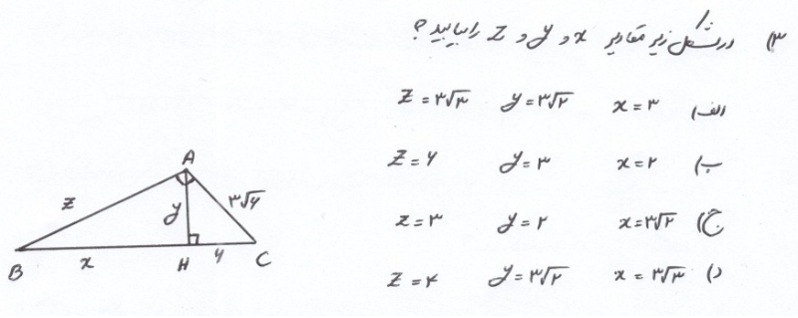 ۳) در شکل زیر مقادیر x و y و Z را بیابید؟
الف) x = ۳ y = ۳√۲ Z = ۳√۳
ب) x = ۲ y = ۳ Z = ۶
ج) x = ۳√۲ y = ۲ z = ۳
د) x = ۳√۳ y = ۳√۲ Z = ۴
A
z
y
۳√۶
B
x
H
۶
C